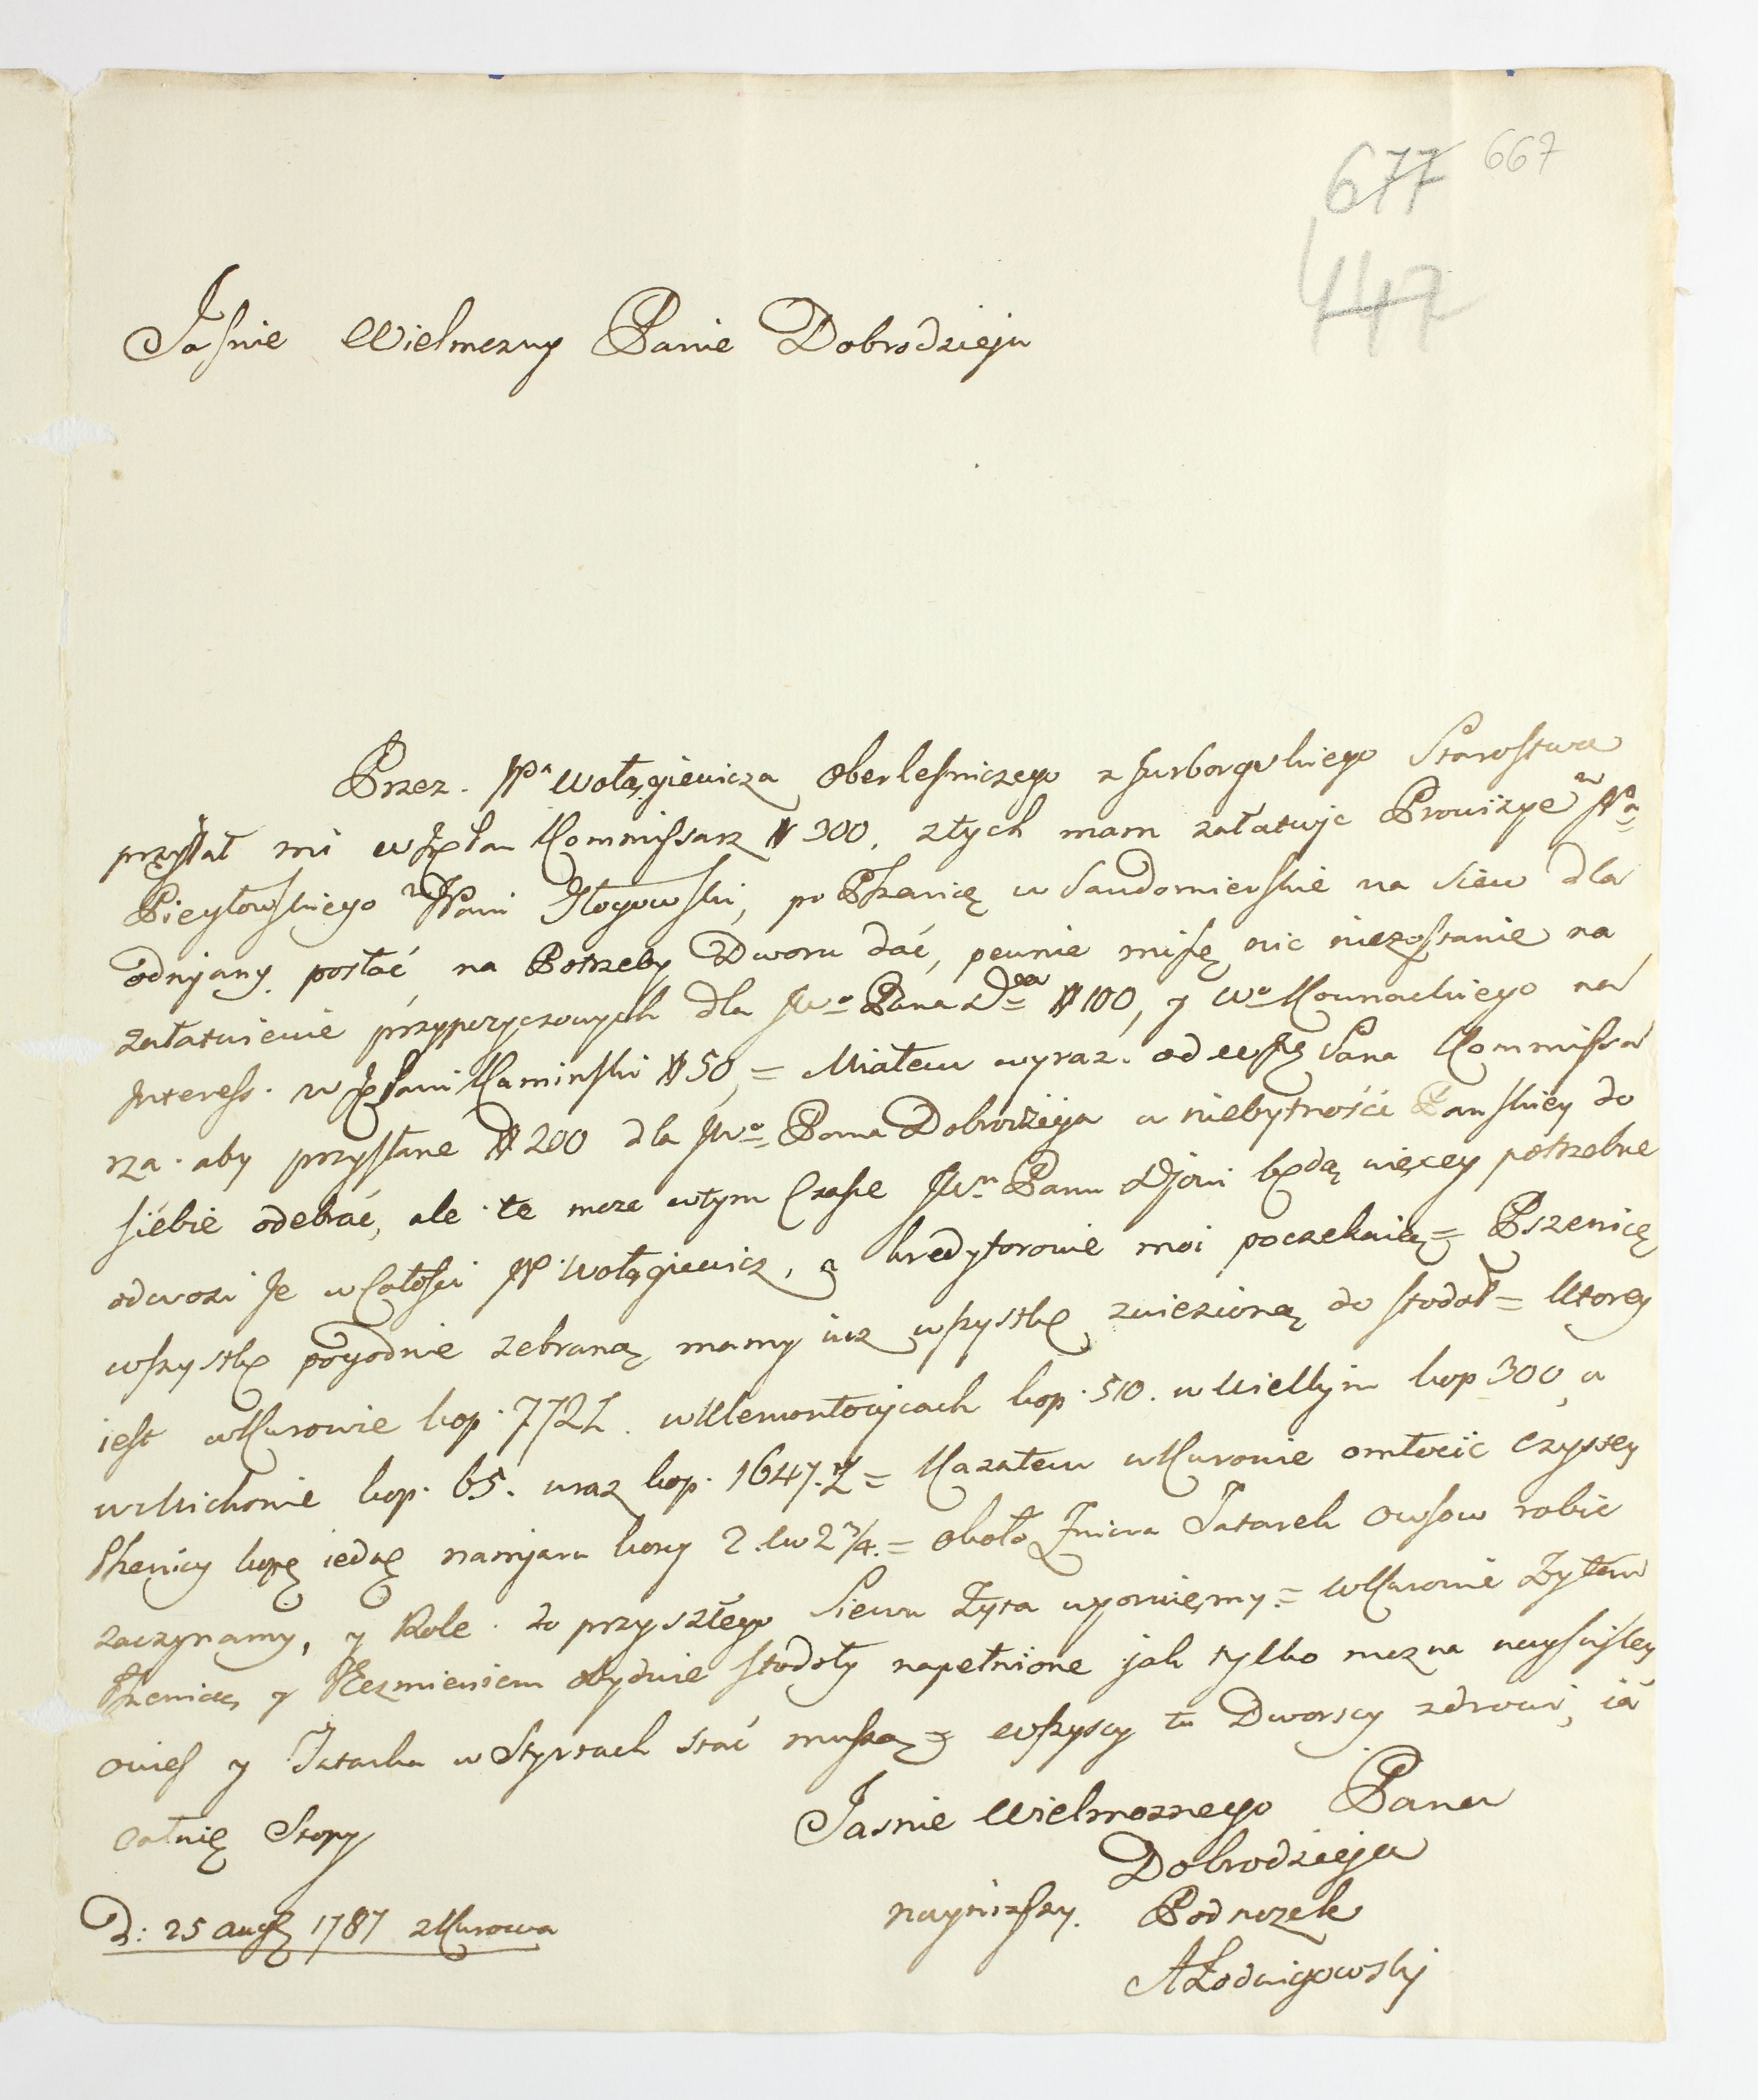 677 667
447
Jaśnie Wielmozny Panie Dobrodzieju
Przez JPa Wołągiewicza Oberleśniczego z Jurborgskiego Starostwa
przysłał mi Kommissarz # 300, z tych mam załatwić Prowizye JPa
Piegłowskiego Pani Głogowski, po Pszenicę w Sandomierskie na siew dla
odmjany posłać na Potrzeby Dworu dać, pewnie misię nic niezostanie na
załatwienie przypożyczonych dla JWo Pana Daa # 100, y Wo Kownackiego na
Interess. Kaminski # 50, = Miałem wyraz. od Pana Kommissa
rza. aby przysłane # 200 dla JWo Pana Dobrodzieja w niebytność Pańskiey do
siebie odebrać, ale te może wtym Czasie JWu Panu będą więcey potrzebne
odwozi Je wCałości JP Wołągiewicz, a kredytorowie moi poczekaią = Pszenicę
wszystkę pogodnie zebraną mamy iuz wszystkę zwiezioną do stodoł = Ktorey
iest wKurowie kop. 772 1. wKlemontowicach kop. 510. w kop 300, a
wMichowie kop. 65. wraz kop. 1647. = Kazałem wKurowie omłocić Czystey
Pszenicy kopę iedną namjaru kory 2. 2 3/4. = około Zniwa Tatarek Owsow robić
zaczynamy, y Role do przyszłego Siewu Zyta = wKurowie Zytem
Pszenicą y Jęczmieniem obydwie stodoły napełnione jak tylko mozna nayściśley
owies y Tatarka w Styrtach stać muszą = wszyscy tu Dworscy zdrowi, ia
całuię Stopy
Jasnie Wielmoznego Pana
Dobrodzieja
nayniższy Podnozek
D: 25 Aug 1787 zKurowa